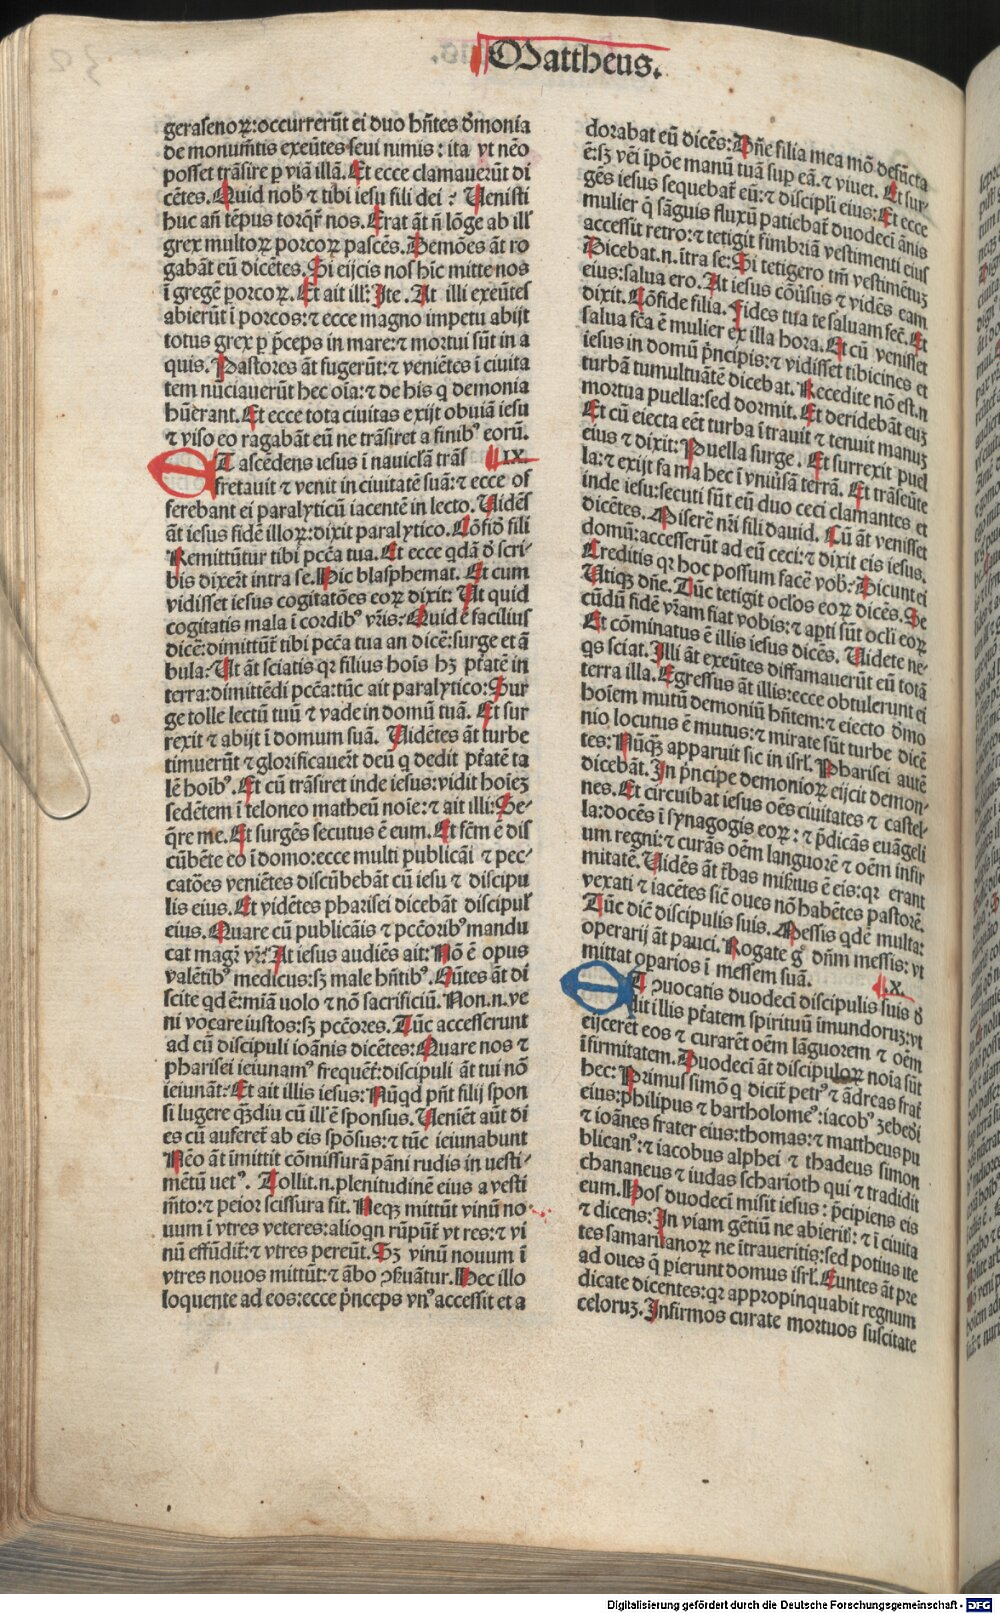 Mattheus.
gerasenoꝝ:occurrerūt ei duo hn̄tes d̄monia
de monumētis exeūtes seui nimis: ita vt nēo
posset trāsire ꝑ viā illā. Et ecce clamauerūt di
cētes. Quid nob̄ ⁊ tibi iesu fili dei: Uenisti
huc an̄ tēpus torq̄r̄ nos. Erat āt n̄ lōge ab ill̓
grex multoꝝ porcoꝝ pascēs. Demōes āt ro
gabāt eū dicētes. Si eijcis nos hic mitte nos
ī gregē porcoꝝ. Et ait ill̓: Ite. At illi exeūtes
abierūt ī porcos:⁊ ecce magno impetu abijt
totus grex ꝑ p̄ceps in mare:⁊ mortui sūt in a
quis. Pastores āt fugerūt:⁊ veniētes ī ciuita
tem nūciauerūt hec oīa:⁊ de his q̄ demonia
hūerant. Et ecce tota ciuitas exijt obuiā iesu
⁊ viso eo rogabāt eū ne trāsiret a finib⁹ eorū.
ET ascēdens iesus ī nauiclā trās IX.
fretauit ⁊ venit in ciuitatē suā:⁊ ecce of
ferebant ei paralyticū iacentē in lecto. Uidēs
āt iesus fidē illoꝝ:dixit paralytico. Cōfid̄ fili
Remittūtur tibi pccā tua. Et ecce qdā d̄ scri-
bis dixer̄t intra se. Hic blasphemat. Et cum
vidisset iesus cogitatōes eoꝝ dixit: Ut quid
cogitatis mala ī cordib⁹ vr̄is: Quid ē facilius
dicē:dimittūt̄ tibi pccā tua an dicē:surge et ā
bula: Ut āt sciatis qꝛ filius hoīs hꝫ ptātē in
terra:dimittēdi pccā:tūc ait paralytico: Sur
ge tolle lectū tuū ⁊ vade in domū tuā. Et sur
rexit ⁊ abijt ī domum suā. Uidētes āt turbe
timuerūt ⁊ glorificauer̄t deū q̄ dedit ptātē ta
lē hoīb⁹. Et cū trāsiret inde iesus:vidit hoīeꝫ
sedētem ī teloneo matheū noīe:⁊ ait illi: Se-
q̄re me. Et surgēs secutus ē eum. Et fcm̄ ē dis
cūbēte eo ī domo:ecce multi publicāi ⁊ pec-
catōes veniētes discūbebāt cū iesu ⁊ discipu
lis eius. Et vidētes pharisei dicebāt discipul̓
eius. Quare cū publicāis ⁊ pccōrib⁹ mandu
cat magr̄ vr̄: At iesus audiēs ait: Nō ē opus
valētib⁹ medicus:sꝫ male hn̄tib⁹. Eūtes āt di
scite qd ē:miām uolo ⁊ nō sacrificiū. Non.n.ve
ni vocare iustos:sꝫ pccōres. Tūc accesserunt
ad eū discipuli ioānis dicētes: Quare nos ⁊
pharisei ieiunam⁹ frequēt̄:discipuli āt tui nō
ieiunāt: Et ait illis iesus: Nūqd pn̄t filij spon
si lugere qꝫdiu cū ill̓ ē sponsus. Ueniēt aūt di
es cū auferet̄ ab eis spōsus:⁊ tūc ieiunabunt
Nēo āt īmittit cōmissurā pāni rudis in uesti-
mētū uet⁹. Tollit.n.plenitudinē eius a vesti
m̄to:⁊ peior scissura fit. Neqꝫ mittūt vinū no
uum ī vtres veteres:alioqn rūpūt̄ vt res:⁊ vi
nū effūdit̄:⁊ vtres pereūt. Sꝫ vinū nouum ī
vtres nouos mittūt:⁊ ābo ꝯẜuātur. Hec illo
loquente ad eos:ecce p̄nceps vn⁹ accessit et a
dorabat eū dicēs: Dn̄e filia mea mō defūcta
ē:sꝫ vēi īpōe manū tuā suꝑ eā.⁊ viuet. Et sur-
gēs iesus sequebat̄ eū:⁊ discipl̓i eius: Et ecce
mulier q̄ sāguis fluxū patiebat̄ duodecī ānis
accessit retro:⁊ tetigit fimbriā vestimenti eius
Dicebat.n. ītra se: Si tetigero tm̄ vestimētuꝫ
eius:salua ero. At iesus cōuſus ⁊ vidēs eam
dixit. Cōfide filia. Fides tua te saluam fec̄. Et
salua fcā ē mulier ex illa hora. Et cū venisset
iesus in domū p̄ncipis:⁊ vidisset tibicines et
turbā tumultuātē dicebat. Recedite nō est.n
mortua puella:sed dormit. Et deridebāt euꝫ
Et cū eiecta eēt turba ītrauit ⁊ tenuit manuꝫ
eius ⁊ dixit: Puella surge. Et surrexit puel
la:⁊ exijt fama hec ī vniūsā terrā. Et trāseūte
inde iesu:secuti sūt eū duo ceci clamantes et
dicētes. Miserē nr̄i fili dauid. Cū āt venisset
domū:accesserūt ad eū ceci:⁊ dixit eis iesus.
Creditis qꝛ hoc possum facē vob̄: Dicunt ei
Utiqꝫ dn̄e. Tūc tetigit ocl̓os eoꝝ dicēs. Se
cūdū fidē vr̄am fiat vobis:⁊ apti sūt ocl̓i eoꝝ
Et cōminatus ē illis iesus dicēs. Uidete ne-
qs sciat. Illi āt exeūtes diffamauerūt eū totā
terra illa. Egressus āt illis:ecce obtulerunt ei
hoīem mutū demoniū hn̄tem:⁊ eiecto d̄mo
nio locutus ē mutus:⁊ mirate sūt turbe dicē
tes: Nūqꝫ apparuit sic in isrl̓. Pharisei autē
dicebāt. In p̄ncipe demonioꝝ eijcit demon-
nes. Et circuibat iesus oēs ciuitates ⁊ castel-
la:docēs ī synagogis eoꝝ: ⁊ p̄dicās euāgeli
um regni:⁊ curās oēm languorē ⁊ oēm infir
mitatē. Uidēs āt t̄bas misertus ē eis:qꝛ erant
vexati ⁊ iacētes sic̄ oues nō habētes pastorē.
Tūc dic̄ discipulis suis. Messis qdē multa:
operarij āt pauci. Rogate g̊ dn̄m messis: vt
mittat oparios ī messem suā.
ET ꝯuocatis duodecī discipulis suis d̄ X.
dit illis ptātem spirituū īmundoruꝫ:vt
eijcerēt eos ⁊ curarēt oēm lāguorem ⁊ oēm
īfirmitatem. Duodecī āt discipuloꝝ noīa sūt
hec: Primus simō q̄ dicit̄ petr⁹ ⁊ ādreas frat̄
eius:philipus ⁊ bartholome⁹:iacob⁹ ꝫebedi
⁊ ioānes frater eius:thomas:⁊ mattheus pu
blican⁹:⁊ iacobus alphei ⁊ thadeus simon
chananeus ⁊ iudas scharioth qui ⁊ tradidit
eum. Hos duodecī misit iesus: p̄cipiens eis
⁊ dicens: In viam gētiū ne abierit̄:⁊ ī ciuita
tes samaritanoꝝ ne ītraueritis:sed potius ite
ad oues q̄ ꝑierunt domus isrl̓. Euntes āt pre
dicate dicentes:qꝛ appropinquabit regnum
celoruꝫ. Infirmos curate mortuos suscitate
Digitalisierung gefördert durch die Deutsche Forschungsgemeinschaft - DFG